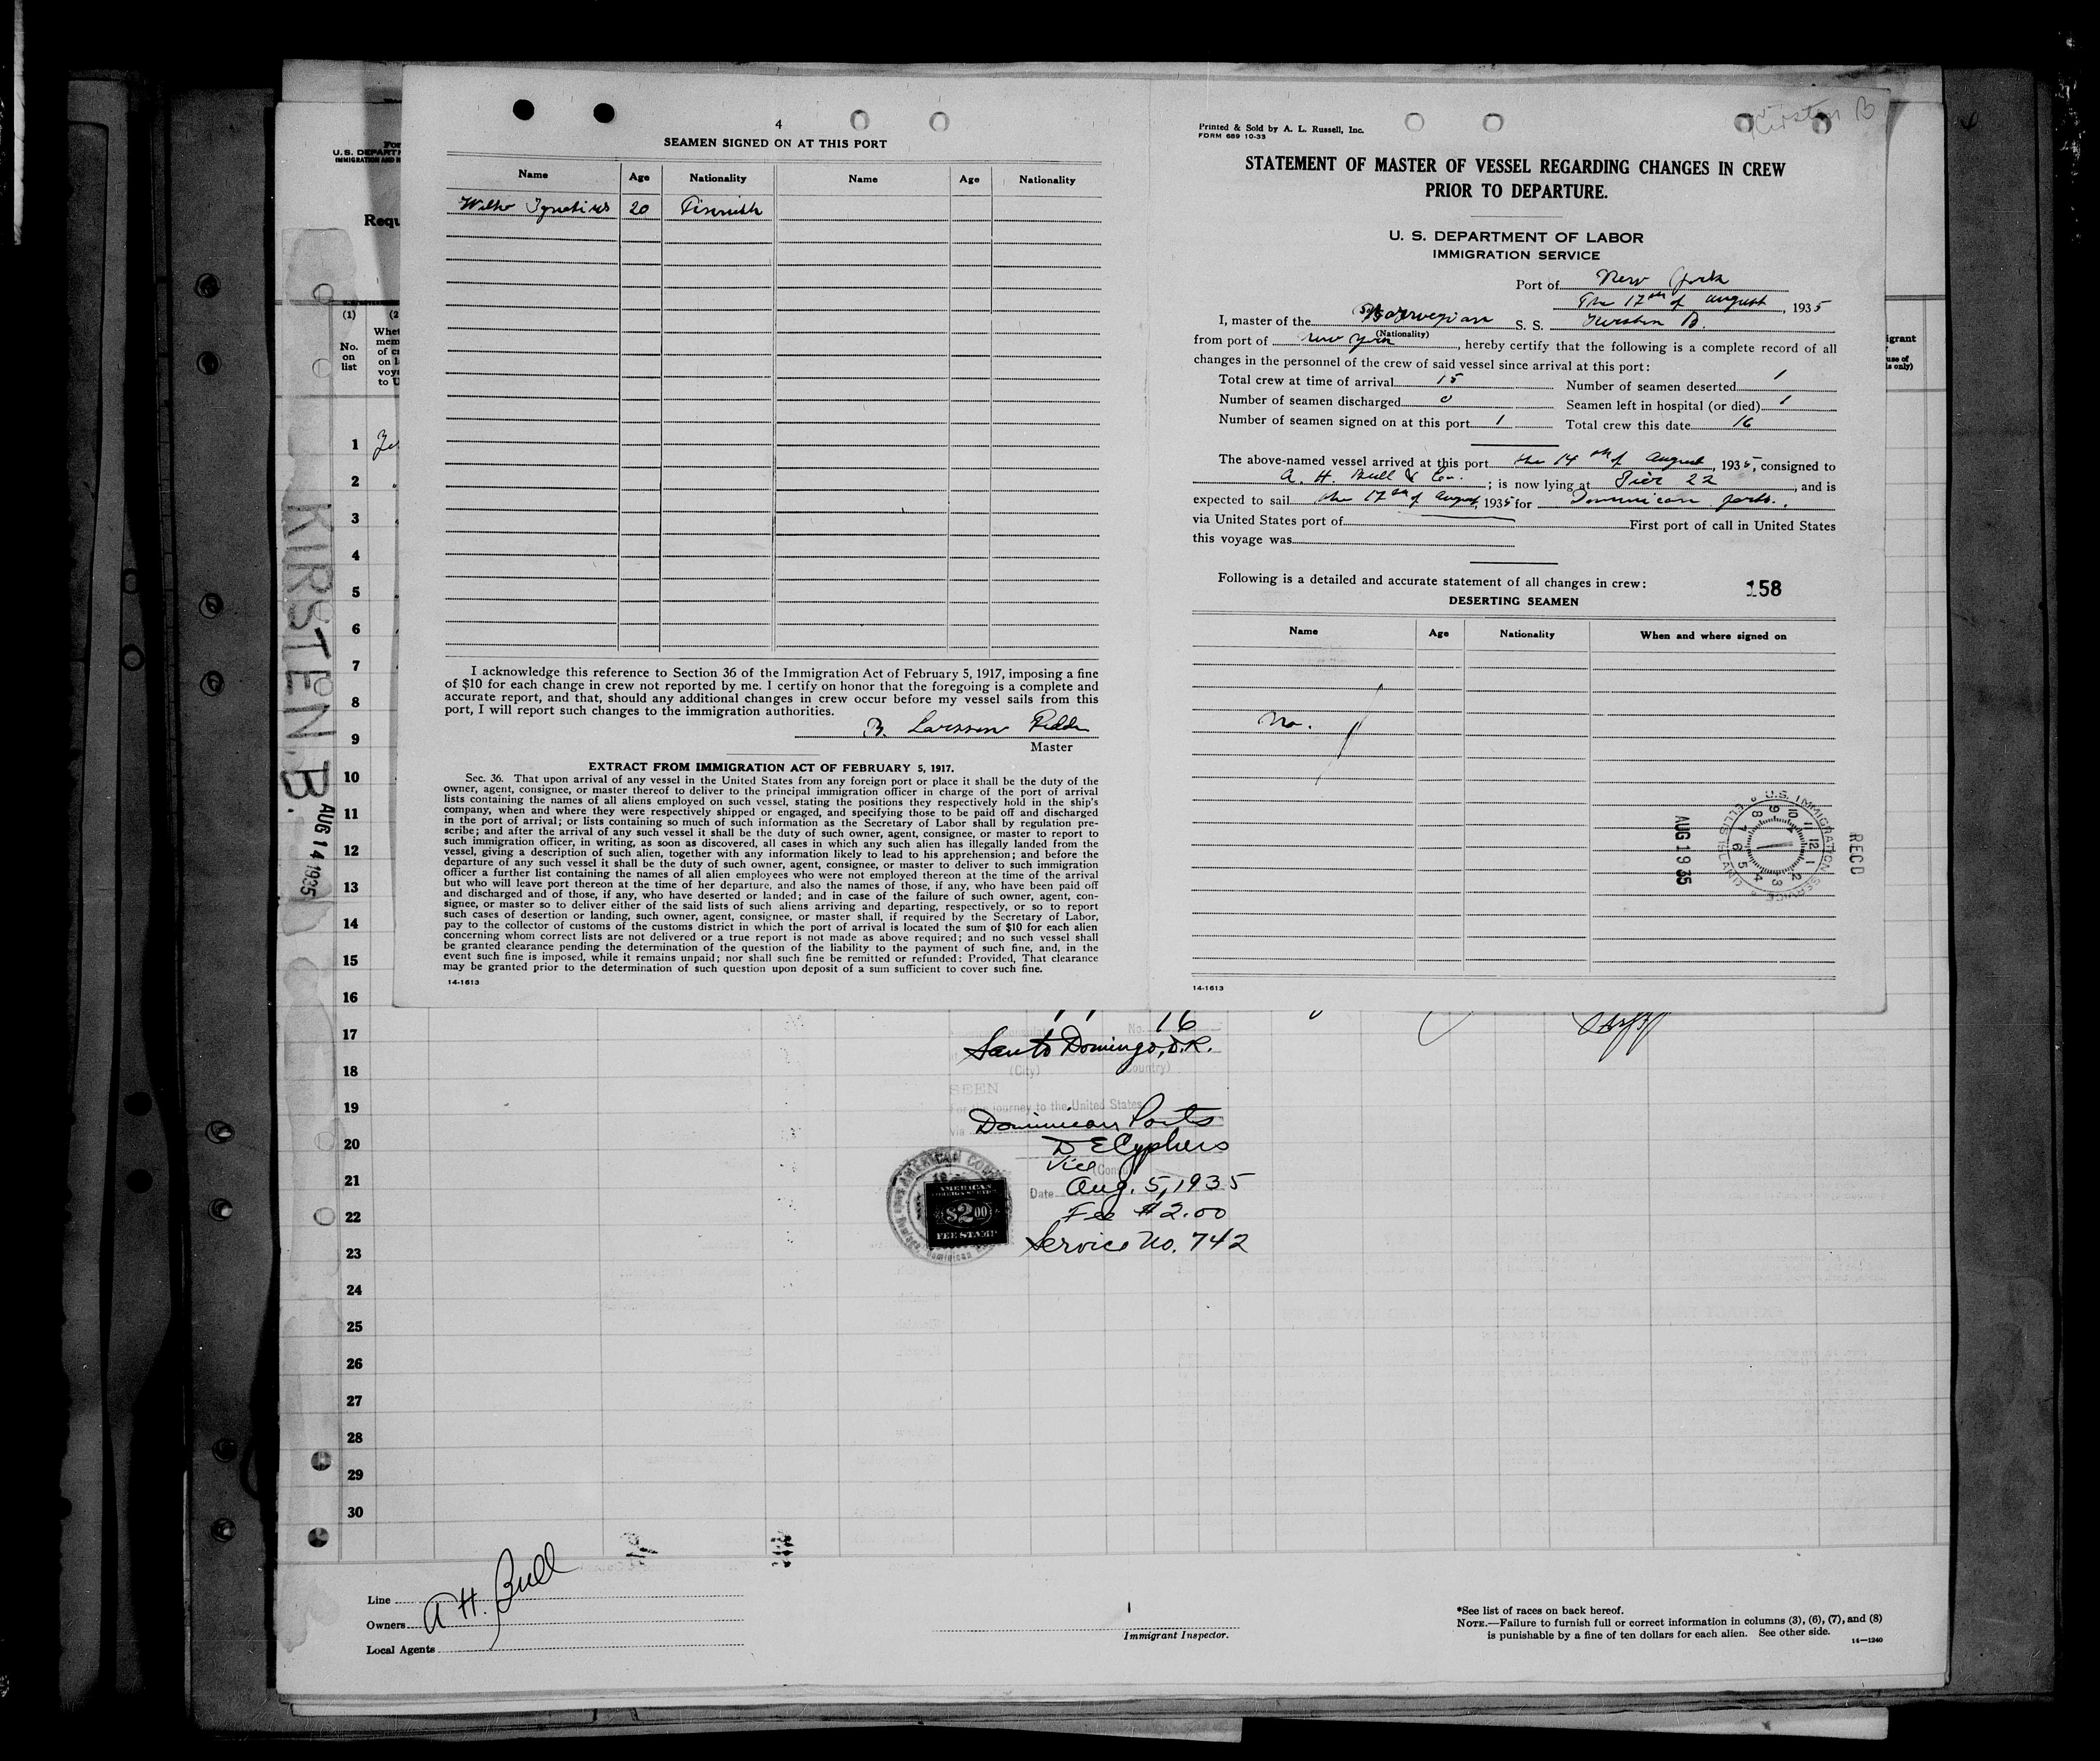 4
SEAMEN SIGNED ON AT THIS PORT
Name Age Nationality Name Age Nationality
Ignatius 20 Finnish
I acknowledge this reference to Section 36 of the Immigration Act of February 5, 1917, imposing a fine
of $10 for each change in crew not reported by me. I certify on honor that the foregoing is a complete and
accurate report, and that, should any additional changes in crew occur before my vessel sails from this
port, I will report such changes to the immigration authorities.
Larsson
Master
EXTRACT FROM IMMIGRATION ACT OF FEBRUARY 5, 1917.
Sec. 36. That upon arrival of any vessel in the United States from any foreign port or place it shall be the duty of the
owner, agent, consignee, or master thereof to deliver to the principal immigration officer in charge of the port of arrival
lists containing the names of all aliens employed on such vessel, stating the positions they respectively hold in the ship's
company, when and where they were respectively shipped or engaged, and specifying those to be paid off and discharged
in the port of arrival; or lists containing so much of such information as the Secretary of Labor shall by regulation pre-
scribe; and after the arrival of any such vessel it shall be the duty of such owner, agent, consignee, or master to report to
such immigration officer, in writing, as soon as discovered, all cases in which any such alien has illegally landed from the
vessel, giving a description of such alien, together with any information likely to lead to his apprehension; and before the
departure of any such vessel it shall be the duty of such owner, agent, consignee, or master to deliver to such immigration
officer a further list containing the names of all alien employees who were not employed thereon at the time of the arrival
but who will leave port thereon at the time of her departure, and also the names of those, if any, who have been paid off
and discharged and of those, if any, who have deserted or landed; and in case of the failure of such owner, agent, con-
signee, or master so to deliver either of the said lists of such aliens arriving and departing, respectively, or so to report
such cases of desertion or landing, such owner, agent, consignee, or master shall, if required by the Secretary of Labor,
pay to the collector of customs of the customs district in which the port of arrival is located the sum of $10 for each alien
concerning whom correct lists are not delivered or a true report is not made as above required; and no such vessel shall
be granted clearance pending the determination of the question of the liability to the payment of such fine, and, in the
event such fine is imposed, while it remains unpaid; nor shall such fine be remitted or refunded: Provided, That clearance
may be granted prior to the determination of such question upon deposit of a sum sufficient to cover such fine.
14-1613
Kirsten B
Printed & Sold by A. L. Russell, Inc.
FORM 689 10-33
STATEMENT OF MASTER OF VESSEL REGARDING CHANGES IN CREW
PRIOR TO DEPARTURE.
U. S. DEPARTMENT OF LABOR
IMMIGRATION SERVICE
Port of New York
The 17th of August, 1935
I, master of the Norwegian S. S. Kirsten B.
(Nationality)
from port of New York, hereby certify that the following is a complete record of all
changes in the personnel of the crew of said vessel since arrival at this port:
Total crew at time of arrival 15 Number of seamen deserted /
Number of seamen discharged 0 Seamen left in hospital (or died) /
Number of seamen signed on at this port 1 Total crew this date 16
The above-named vessel arrived at this port the 14th of August, 1935, consigned to
A. H. Bull & Co. ; is now lying at Pier 22, and is
expected to sail the 17th of August, 1935 for Dominican ports.
via United States port of First port of call in United States
this voyage was
Following is a detailed and accurate statement of all changes in crew: 158
DESERTING SEAMEN
Name Age Nationality When and where signed on
No.
U.S. IMMIGRATION SERVICE ELLIS ISLAND
RECD
AUG 19 35
14-1613
U.S. DEPART
IMMIGRATION AND N
Requ
(1) (2
No. on list
Whet
mem
of cr
on l
voya
to U
igrant
use of
s only)
KIRSTEN B.
AUG 14 1935
1
2
3
4
5
6
7
8
9
10
11
12
13
14
15
16
17
18
19
20
21
22
23
24
25
26
27
28
29
30
No. 16
Santo Domingo, D.R.
(City) (Country)
SEEN
For the journey to the United States
via Dominican Ports
D E Cyphers
Vice Consul
Date Aug. 5, 1935
Fee $2.00
Service No. 742
AMERICAN
FOREIGN SERVICE
$2.00
FEE STAMP
Line
Owners A H. Bull
Local Agents
Immigrant Inspector.
*See list of races on back hereof.
NOTE.—Failure to furnish full or correct information in columns (3), (6), (7), and (8)
is punishable by a fine of ten dollars for each alien. See other side.
14—1240